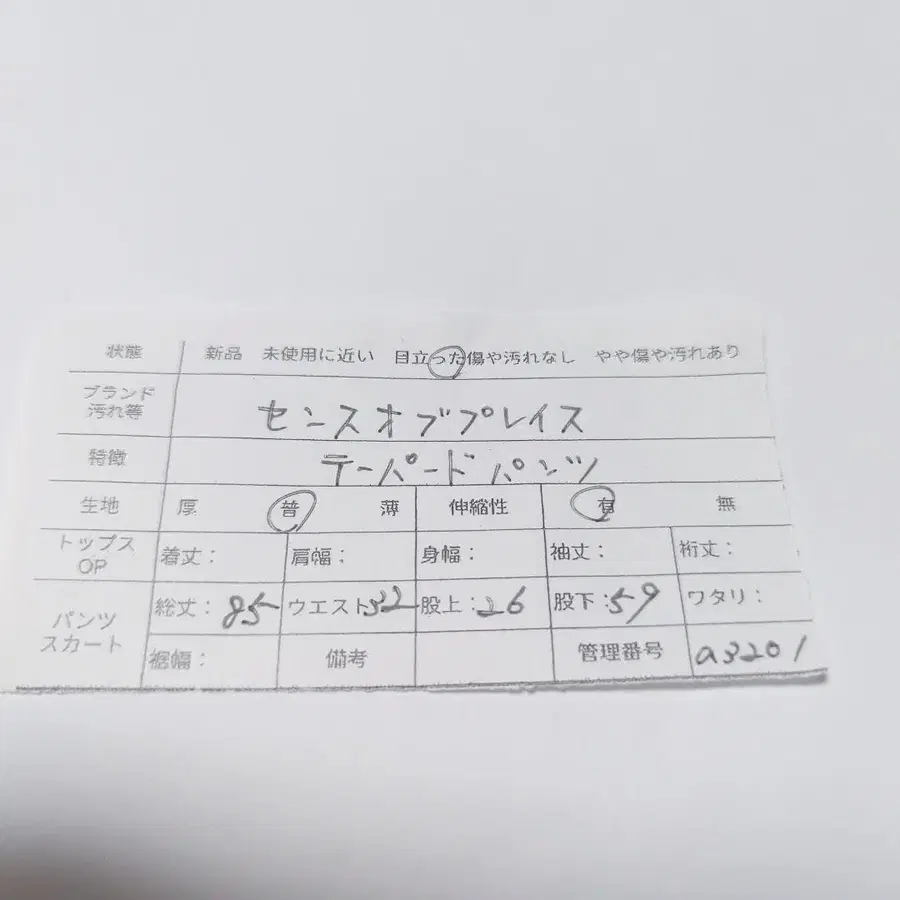 状態 新品 未使用に近い 目立った傷や汚れなし やや傷や汚れあり
ブランド
汚れ等 センスオブプレイス
特徴 テーパードパンツ
生地 厚 普 薄 伸縮性 有 無
トップス
OP 着丈: 肩幅: 身幅: 袖丈: 裄丈:
パンツ
スカート 総丈:85 ウエスト32 股上:26 股下:59 ワタリ:
裾幅: 備考 管理番号 a3201